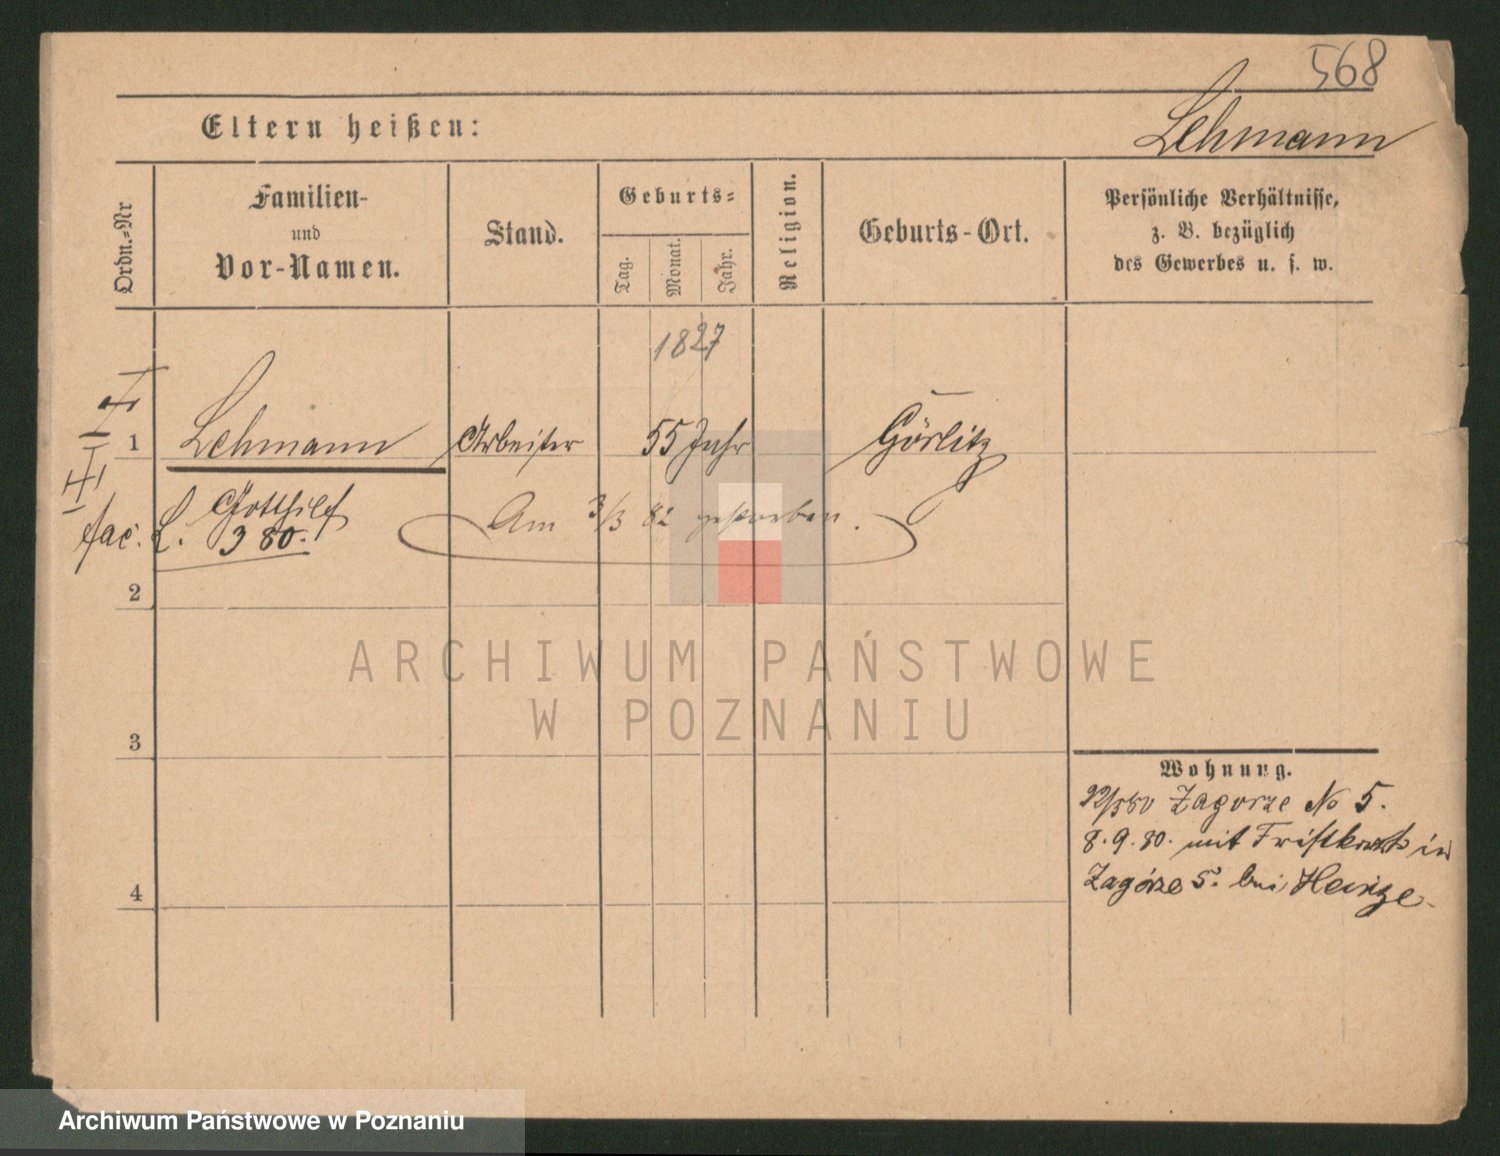 568
Eltern heißen:
Lehmann
Ordn.-Nr
Familien-
und
Vor-Namen.
Stand.
Geburts-
Tag.
Monat.
Jahr.
Religion.
Geburts-Ort.
Persönliche Verhältnisse,
z. B. bezüglich
des Gewerbes u. s. w.
1827
1 Lehmann Arbeiter 55 Jahr Görlitz
Gotthilf
fac. L. 3 80.
Am 3/3 82 gestorben.
2
ARCHIWUM PAŃSTWOWE
W POZNANIU
3
Wohnung.
Zagorze No 5.
8.9.80. mit in
Zagórze 5. bei Heinze.
4
Archiwum Państwowe w Poznaniu